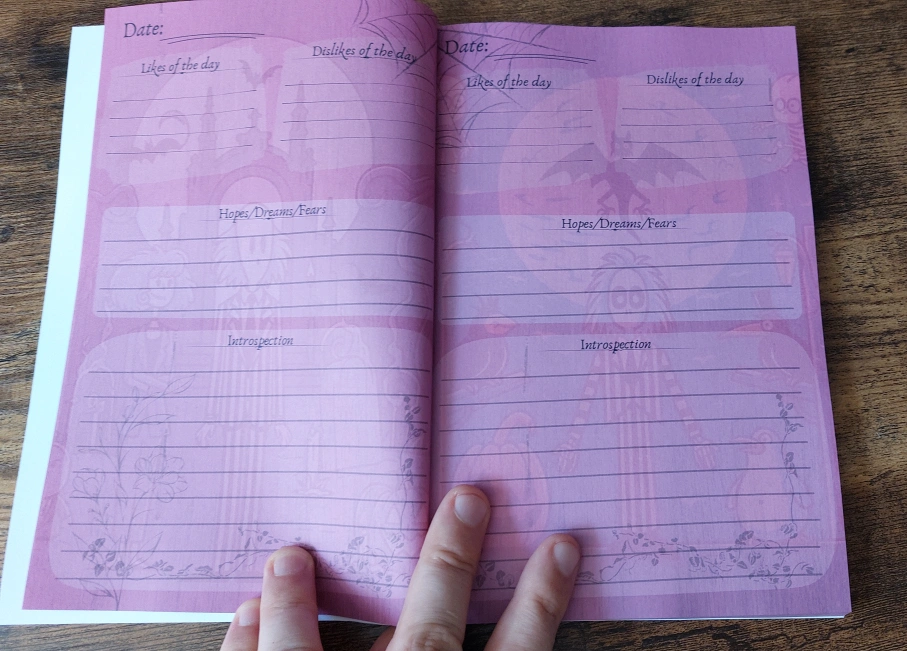 Date:
Likes of the day
Dislikes of the day
Hopes/Dreams/Fears
Introspection
Date:
Likes of the day
Dislikes of the day
Hopes/Dreams/Fears
Introspection